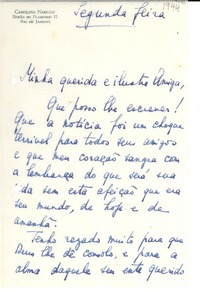 CAROLINA NABUCO
PRAIA DO FLAMENGO 12
RIO DE JANEIRO
1944
Segunda feira
Minha querida e ilustre Amiga,
Que posso lhe escrever!
Que a notícia foi um choque
terrível para todos seus amigos
e que meu coração sangra com
a lembrança do que será sua
vida sem esta afeição que era
seu mundo, de hoje e de
amanhã.
Tenho rezado muito para que
Deus lhe dê consolo, e para a
alma daquele seu ente querido